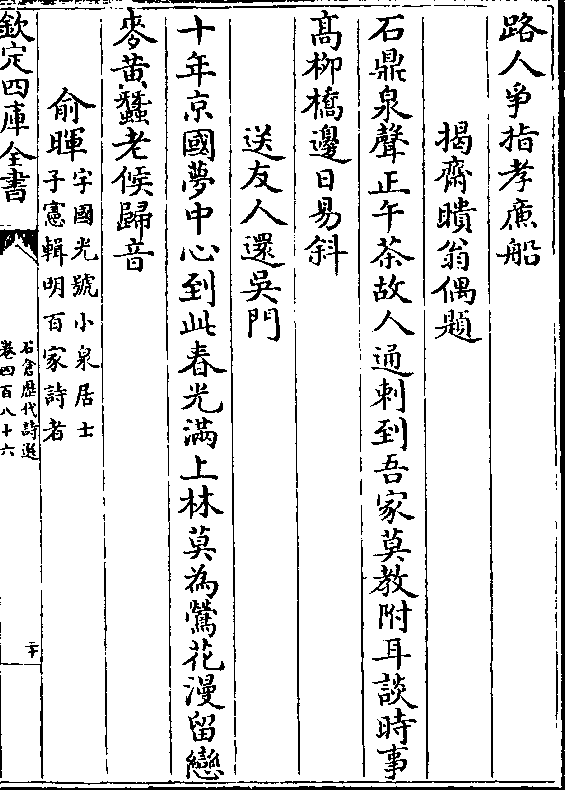 路人爭指孝廉船
揭齋瞶翁偶題
石鼎泉聲正午茶故人通刺到吾家莫教附耳談時事
髙柳橋邊日易斜
送友人還吳門
十年京國夢中心到此春光滿上林莫為鶯花漫留戀
麥黃蠶老候歸音
俞暉字國光號小泉居士
子憲輯明百家詩者
欽定四庫全書
石倉歷代詩選
卷四百八十六
二十